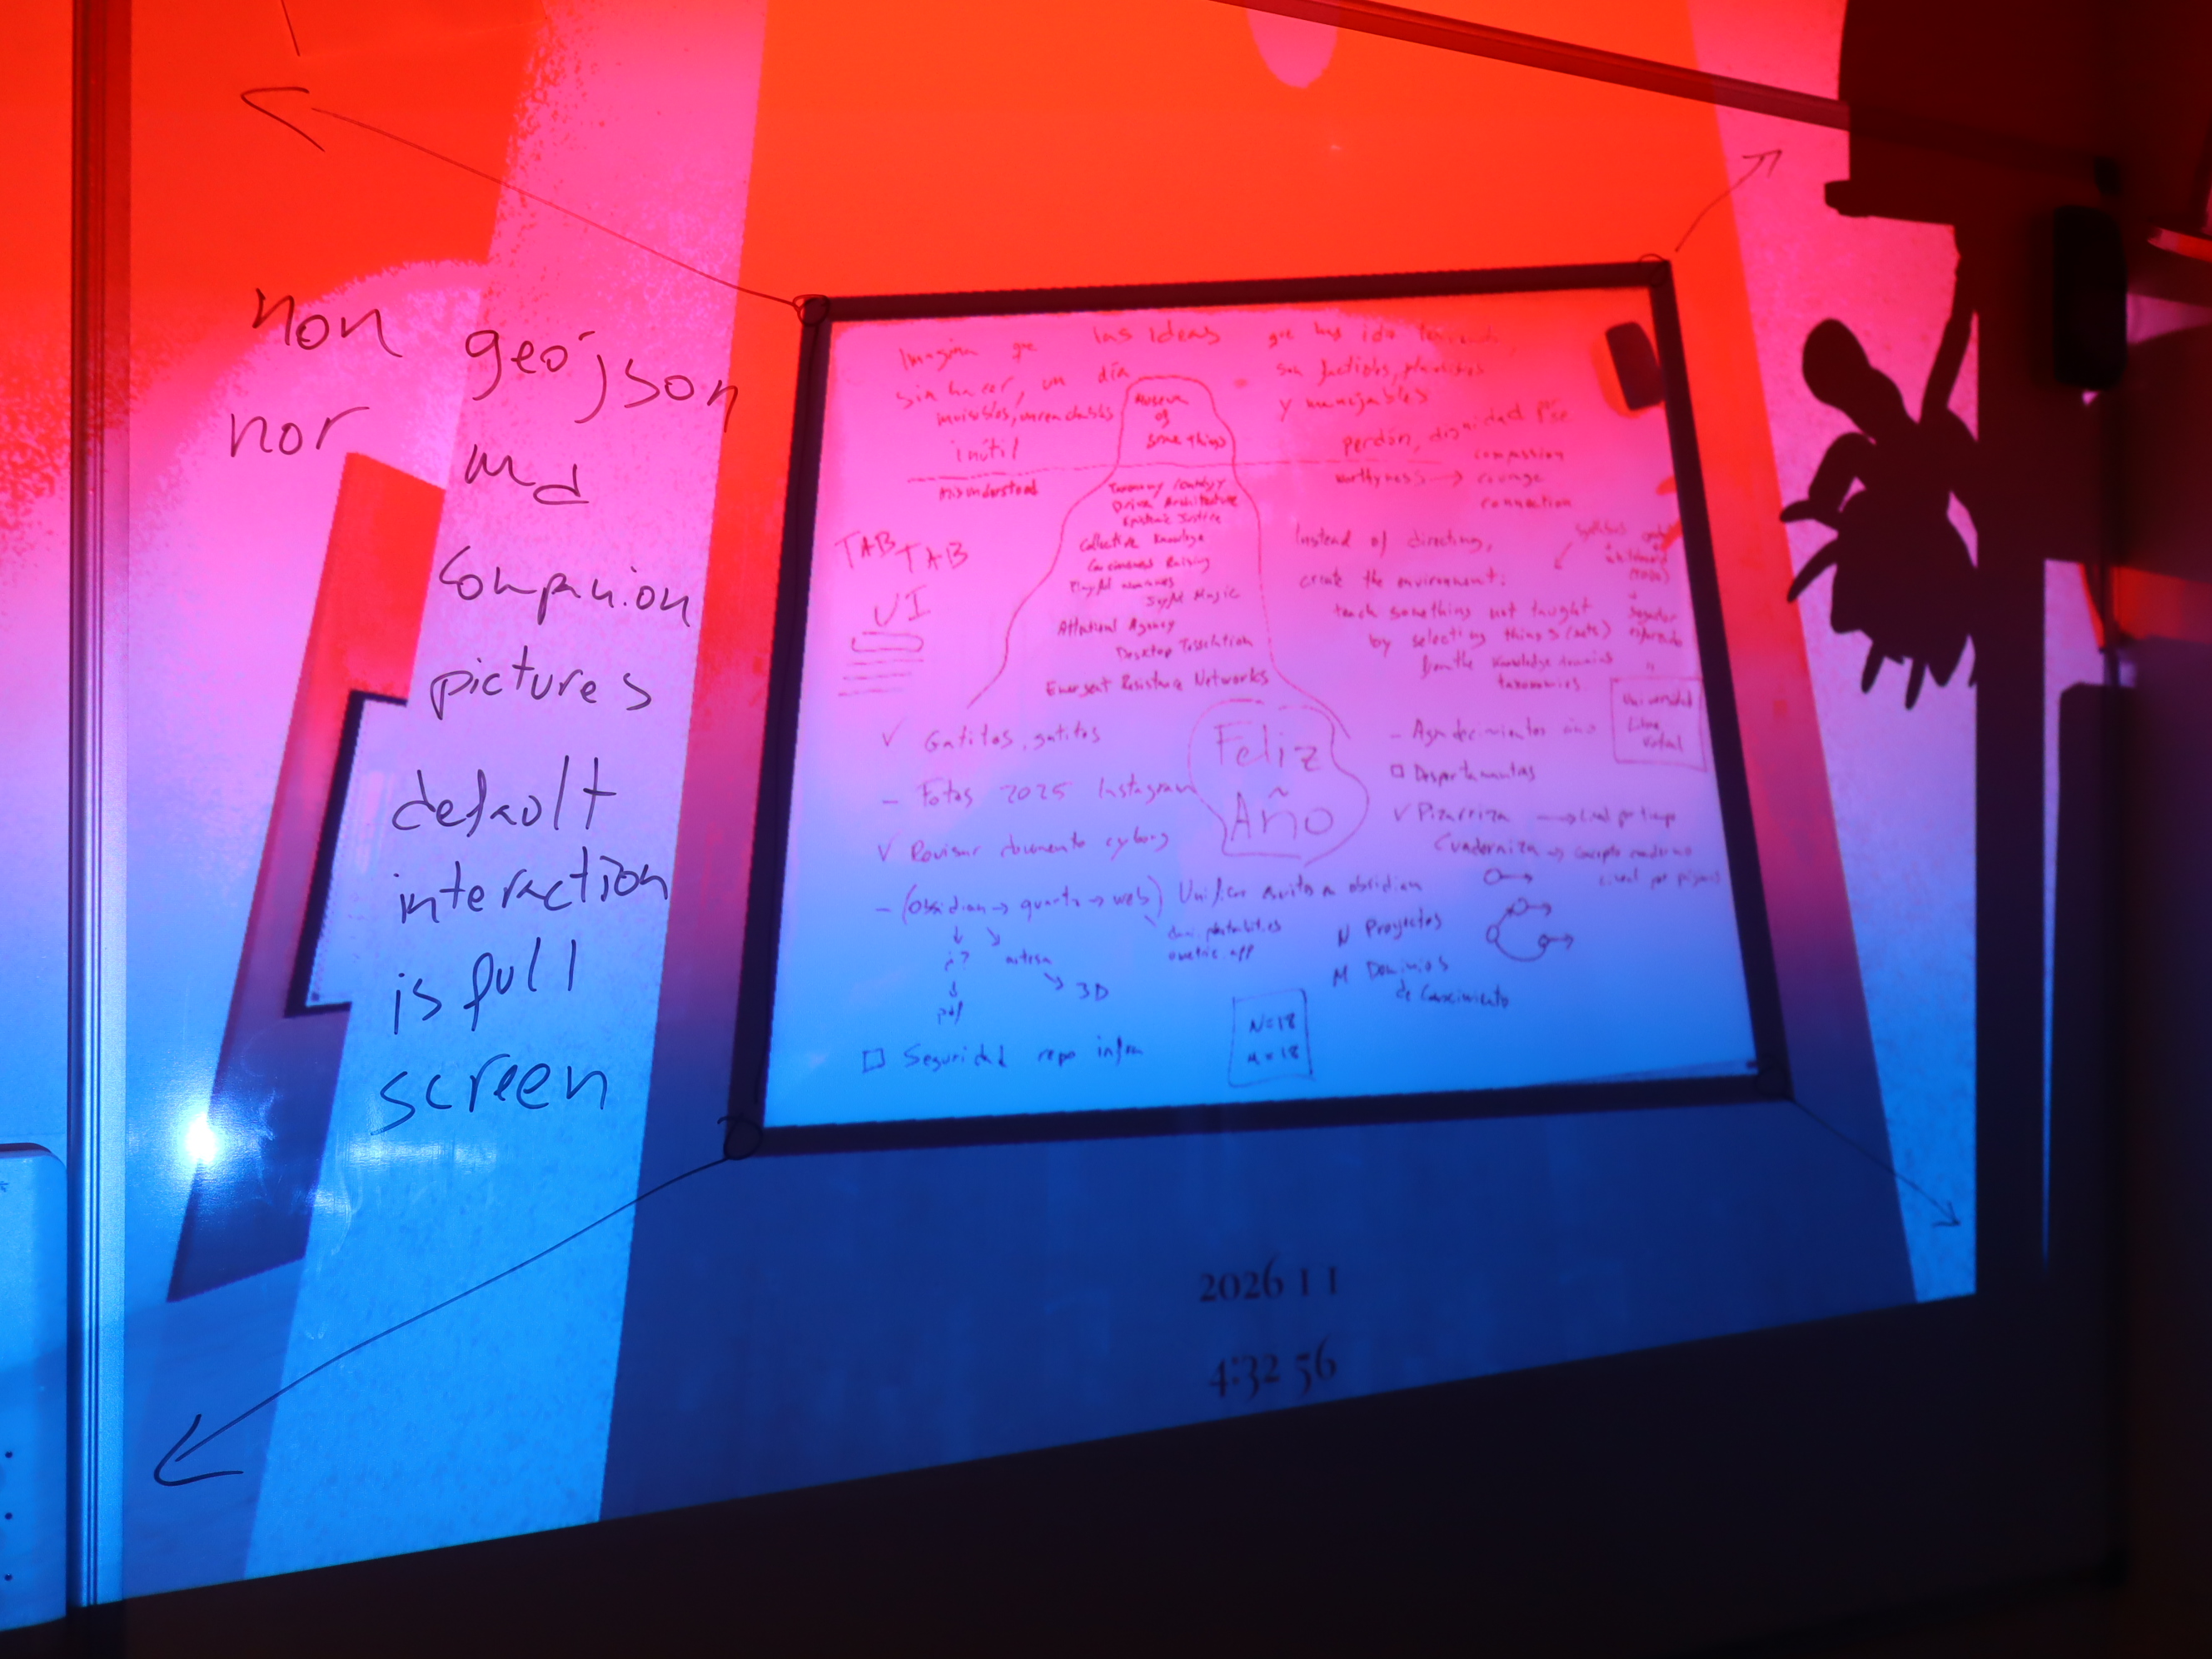 non geojson
nor md
companion
pictures
default
interaction
is full
screen
Imagina que las ideas que has ido
sin hacer, un día son factibles,
invisibles, unreachables y manejables
inútil
misunderstood
Museum
of
Some things
perdón, dignidad
worthyness → courage
compassion
connection
Driven Architecture
Epistemic Justice
Collective Knowledge
Consciousness Raising
Joyful Magic
Attentional Agency
Desktop
Emergent Resistance Networks
TAB TAB
UI
Instead of directing,
create the environment:
teach something not taught
by selecting things (sets)
from the knowledge domains
taxonomies
Universidad
Libre
virtual
✓ Gatitos, gatitos
– Fotos 2025 Instagram
✓ Revisar documento cyborg
– (Obsidian → quarto → web) Unificar en obsidian
↓ ↘
¿? ↘ 3D
↓
pdf
□ Seguridad repo infra
Feliz
Año
– Agradecimientos
□ Despertamentas
✓ Pizarriza → Lineal por tiempo
Cuaderniza → concepto cuaderno
N Proyectos
M Dominios
de Conocimiento
N=18
M=18
2026 1 1
4:32 56